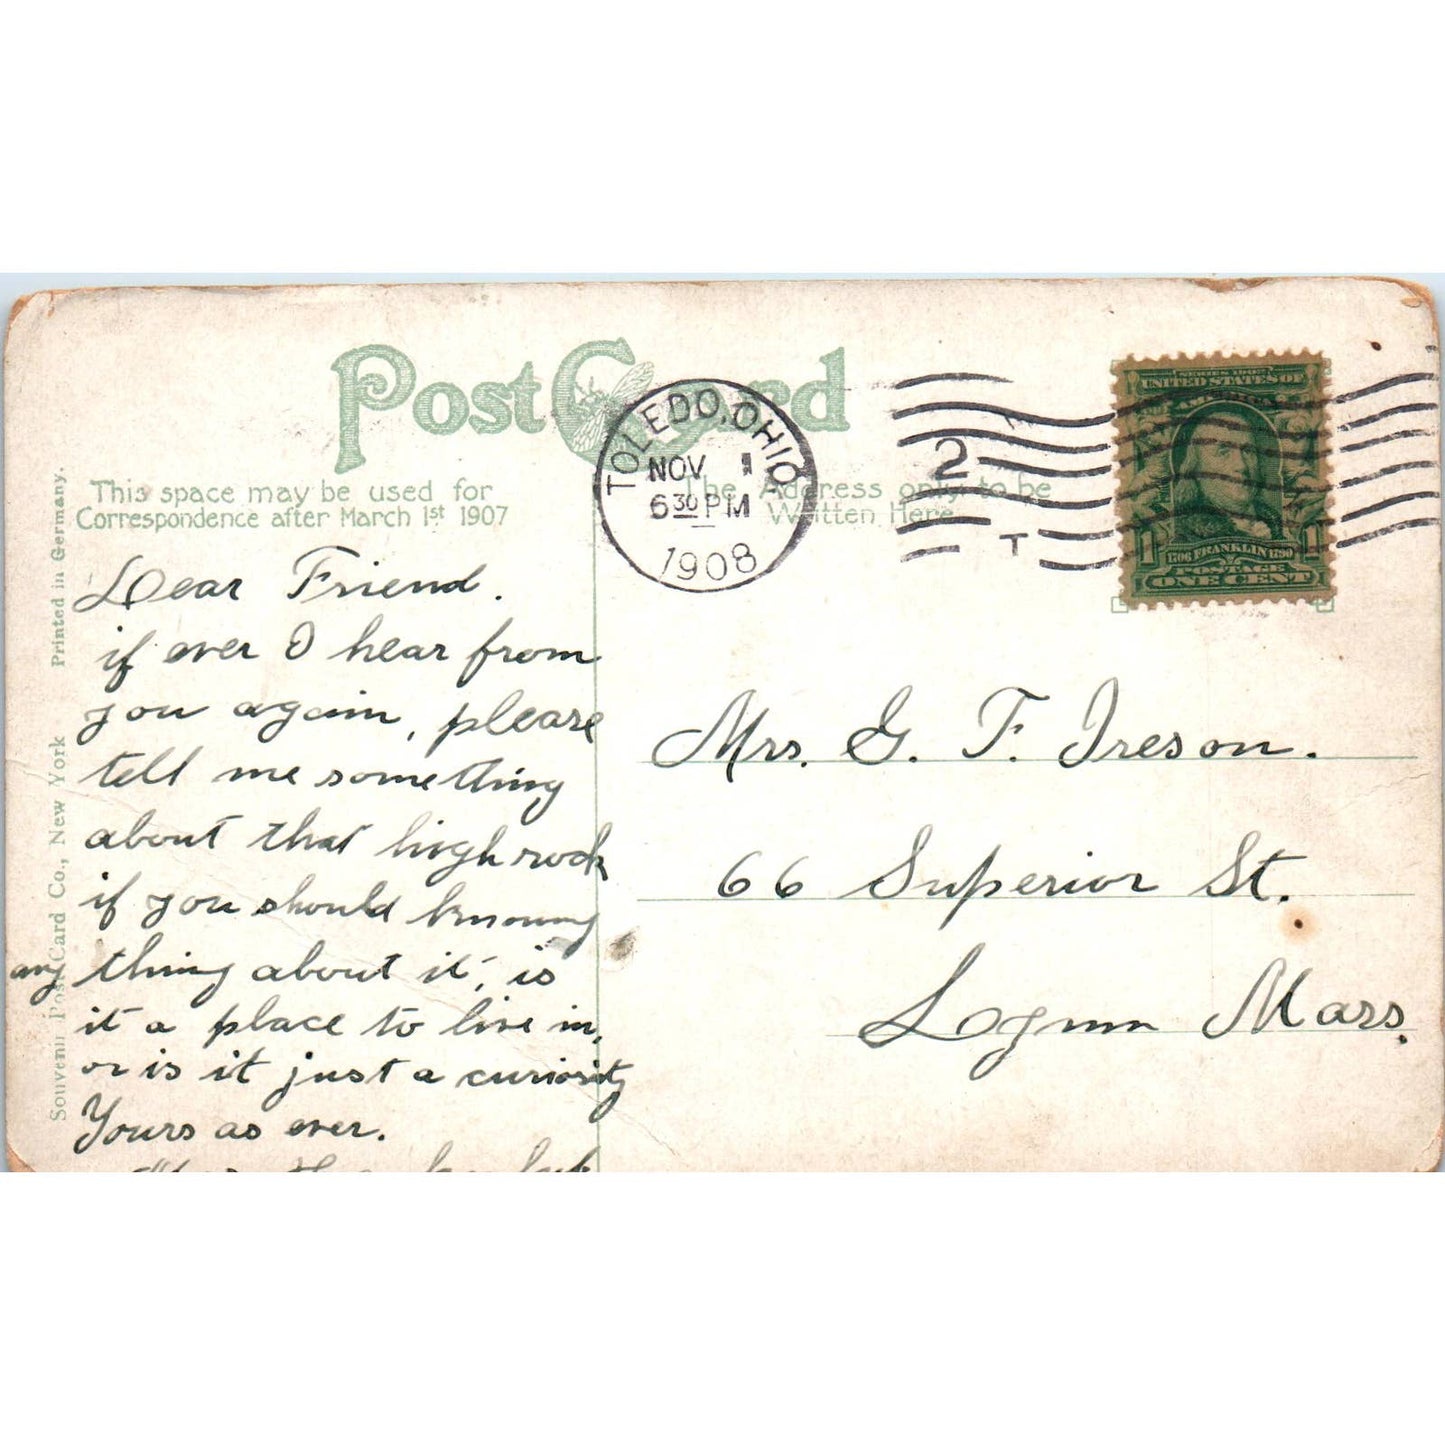 Post Card
This space may be used for
Correspondence after March 1st 1907
The Address only to be
Written Here
TOLEDO, OHIO
NOV 1
6 30 PM
1908
2
T
SERIES 1902
UNITED STATES OF
AMERICA
1706 FRANKLIN 1790
1 1
POSTAGE
ONE CENT
Souvenir Post Card Co., New York Printed in Germany.
Dear Friend.
if ever I hear from
you again, please
tell me something
about that high rock
if you should know
any thing about it, is
it a place to live in,
or is it just a curiosity
Yours as ever.
Mrs. G. F. Ireson.
66 Superior St.
Lynn Mass.